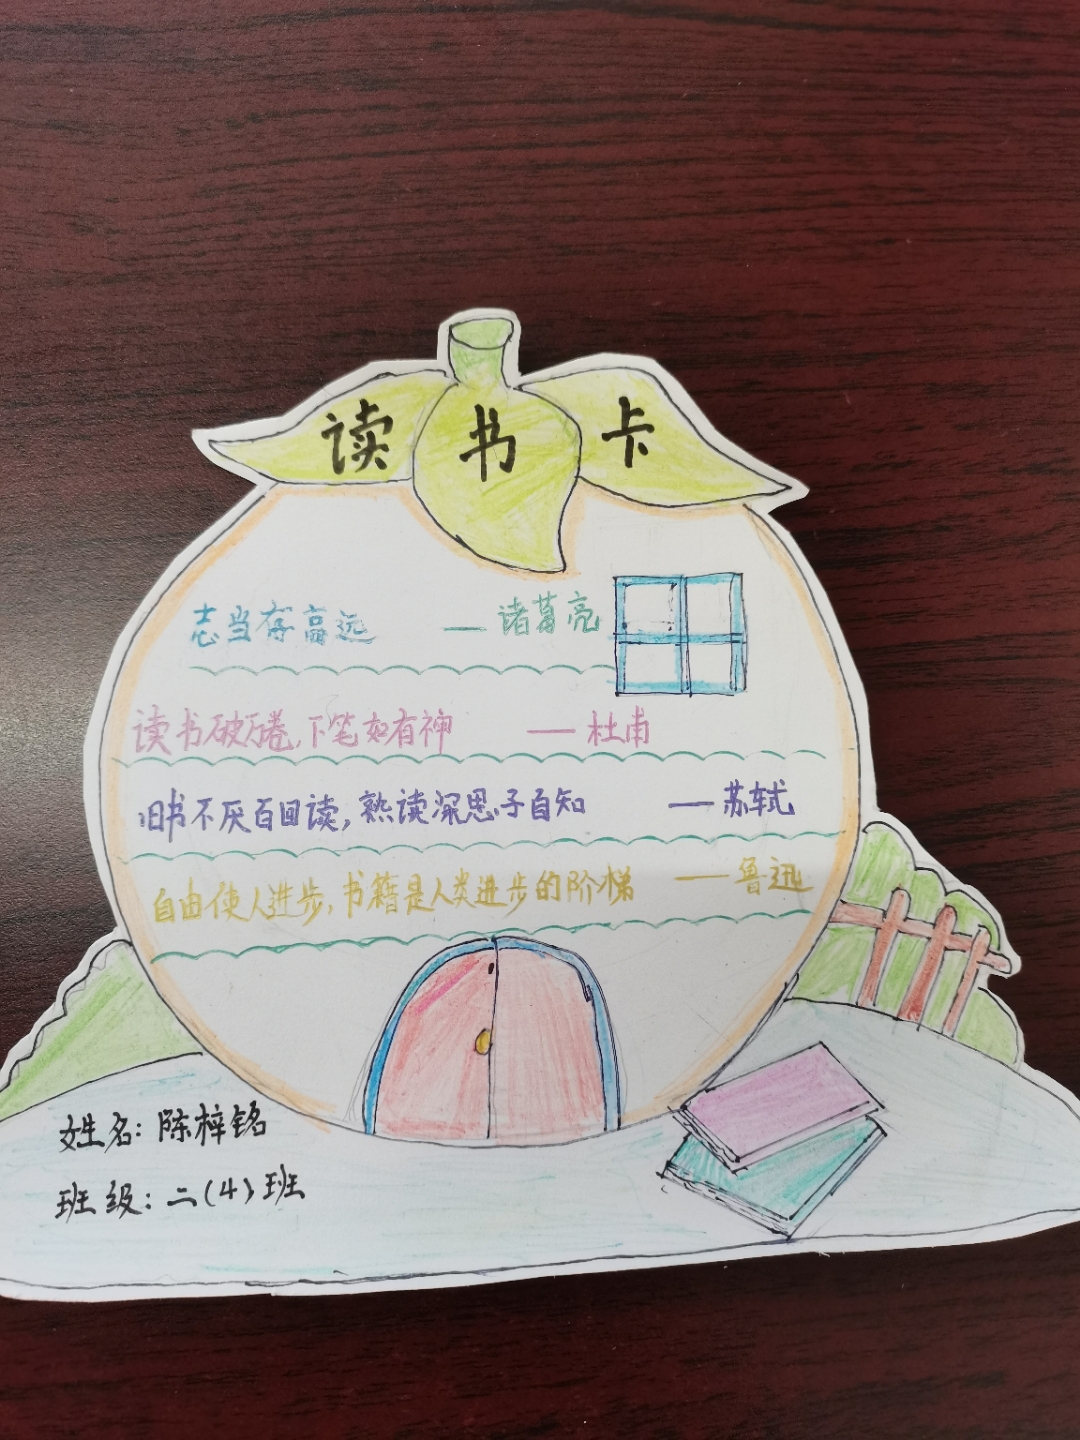 读书卡
志当存高远 ——诸葛亮
读书破万卷,下笔如有神 ——杜甫
旧书不厌百回读,熟读深思子自知 ——苏轼
自由使人进步,书籍是人类进步的阶梯 ——鲁迅
姓名:陈梓铭
班级:二(4)班